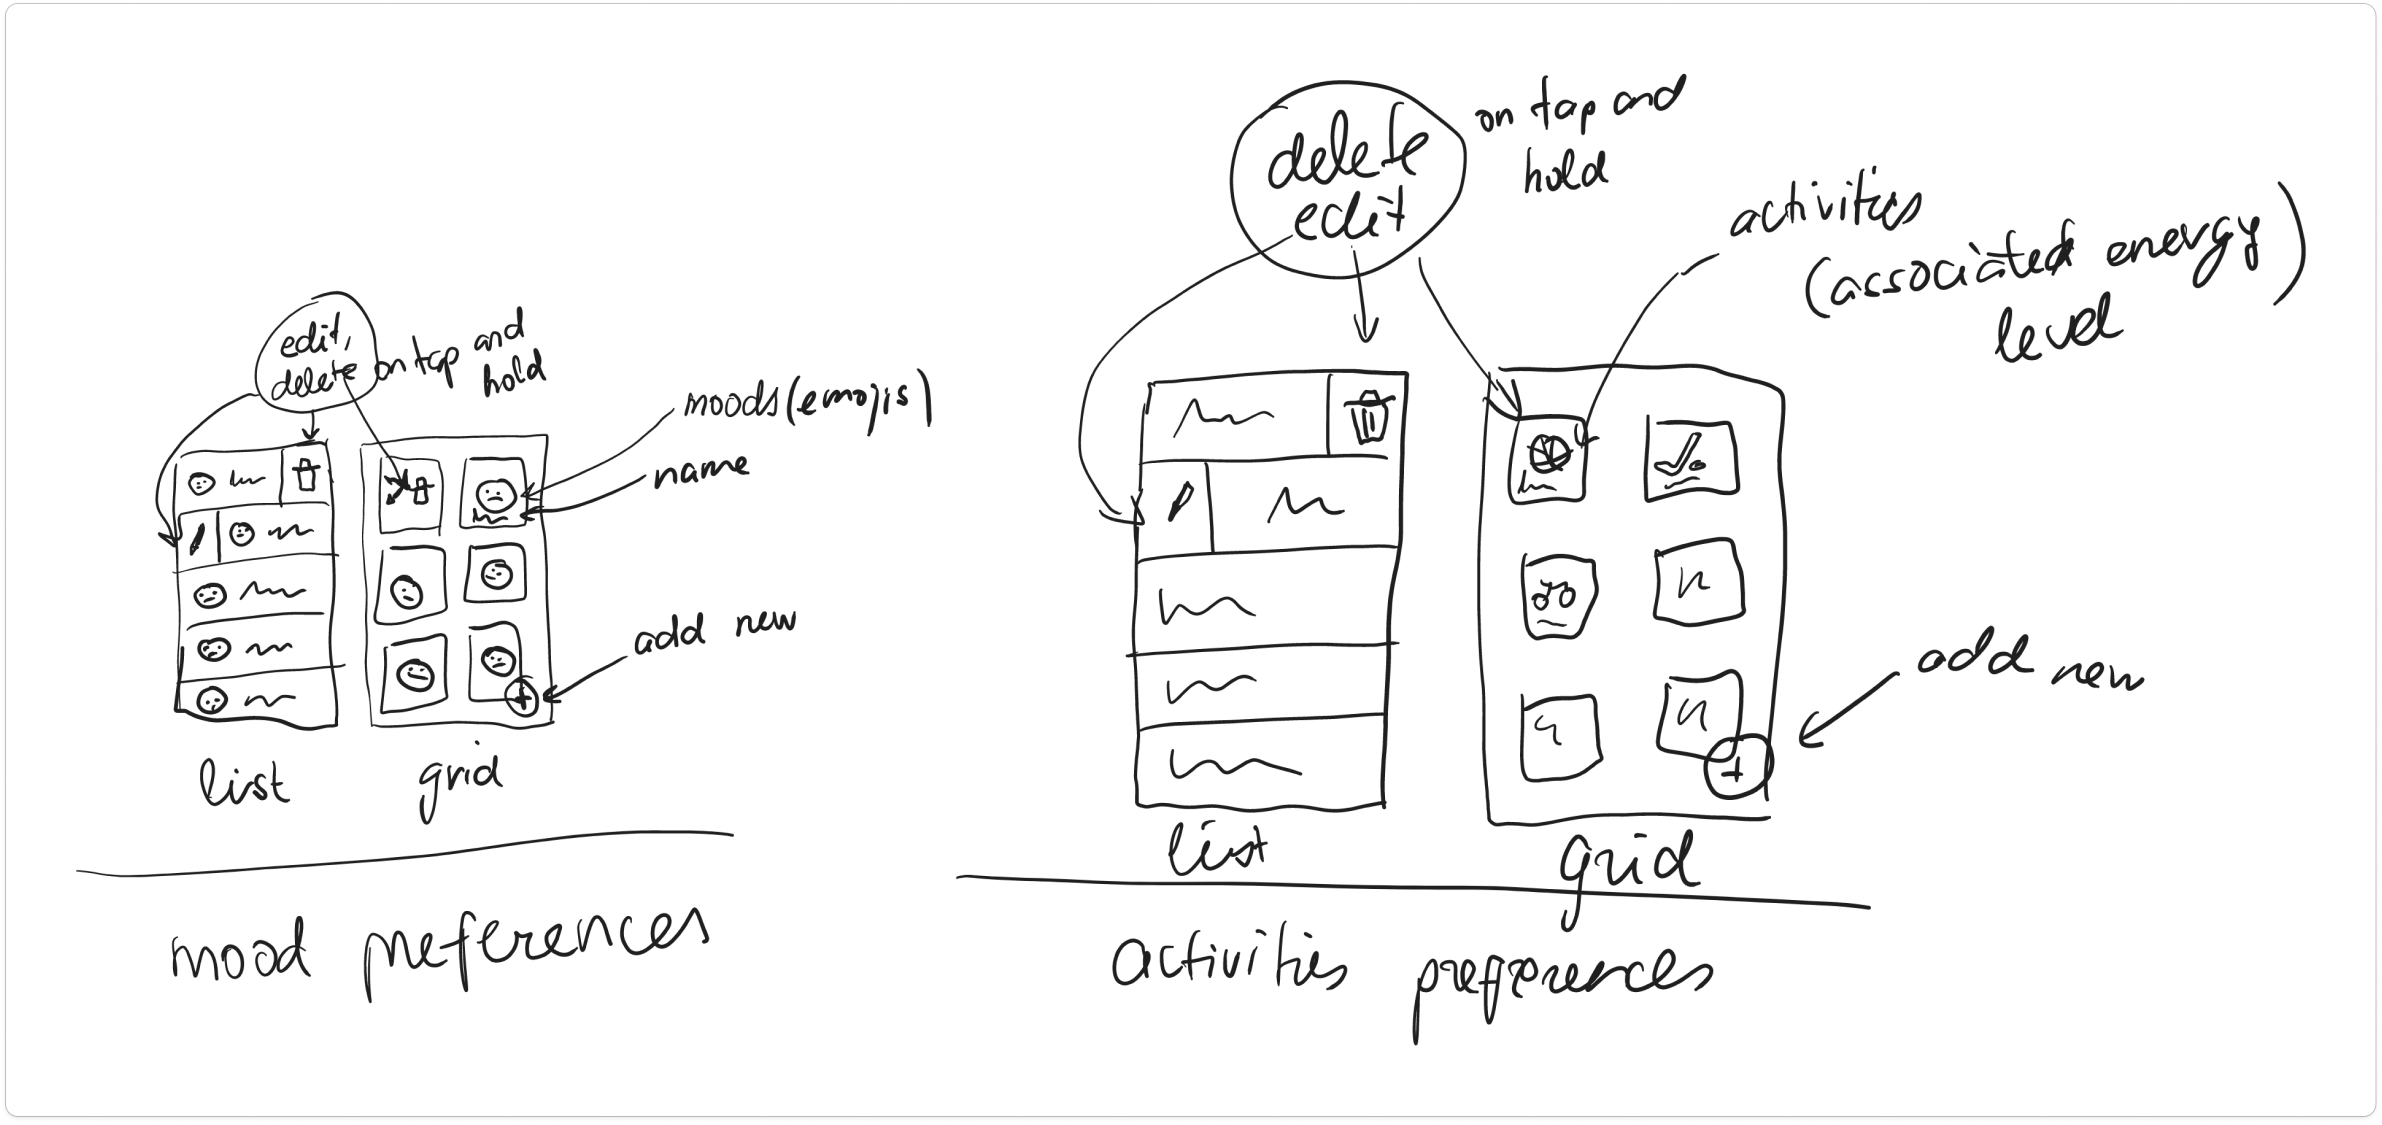 edit,
delete on tap and
hold
moods (emojis)
name
add new
list
grid
mood preferences
delete
edit
on tap and
hold
activities
(associated energy)
level
add new
list
grid
activities preferences